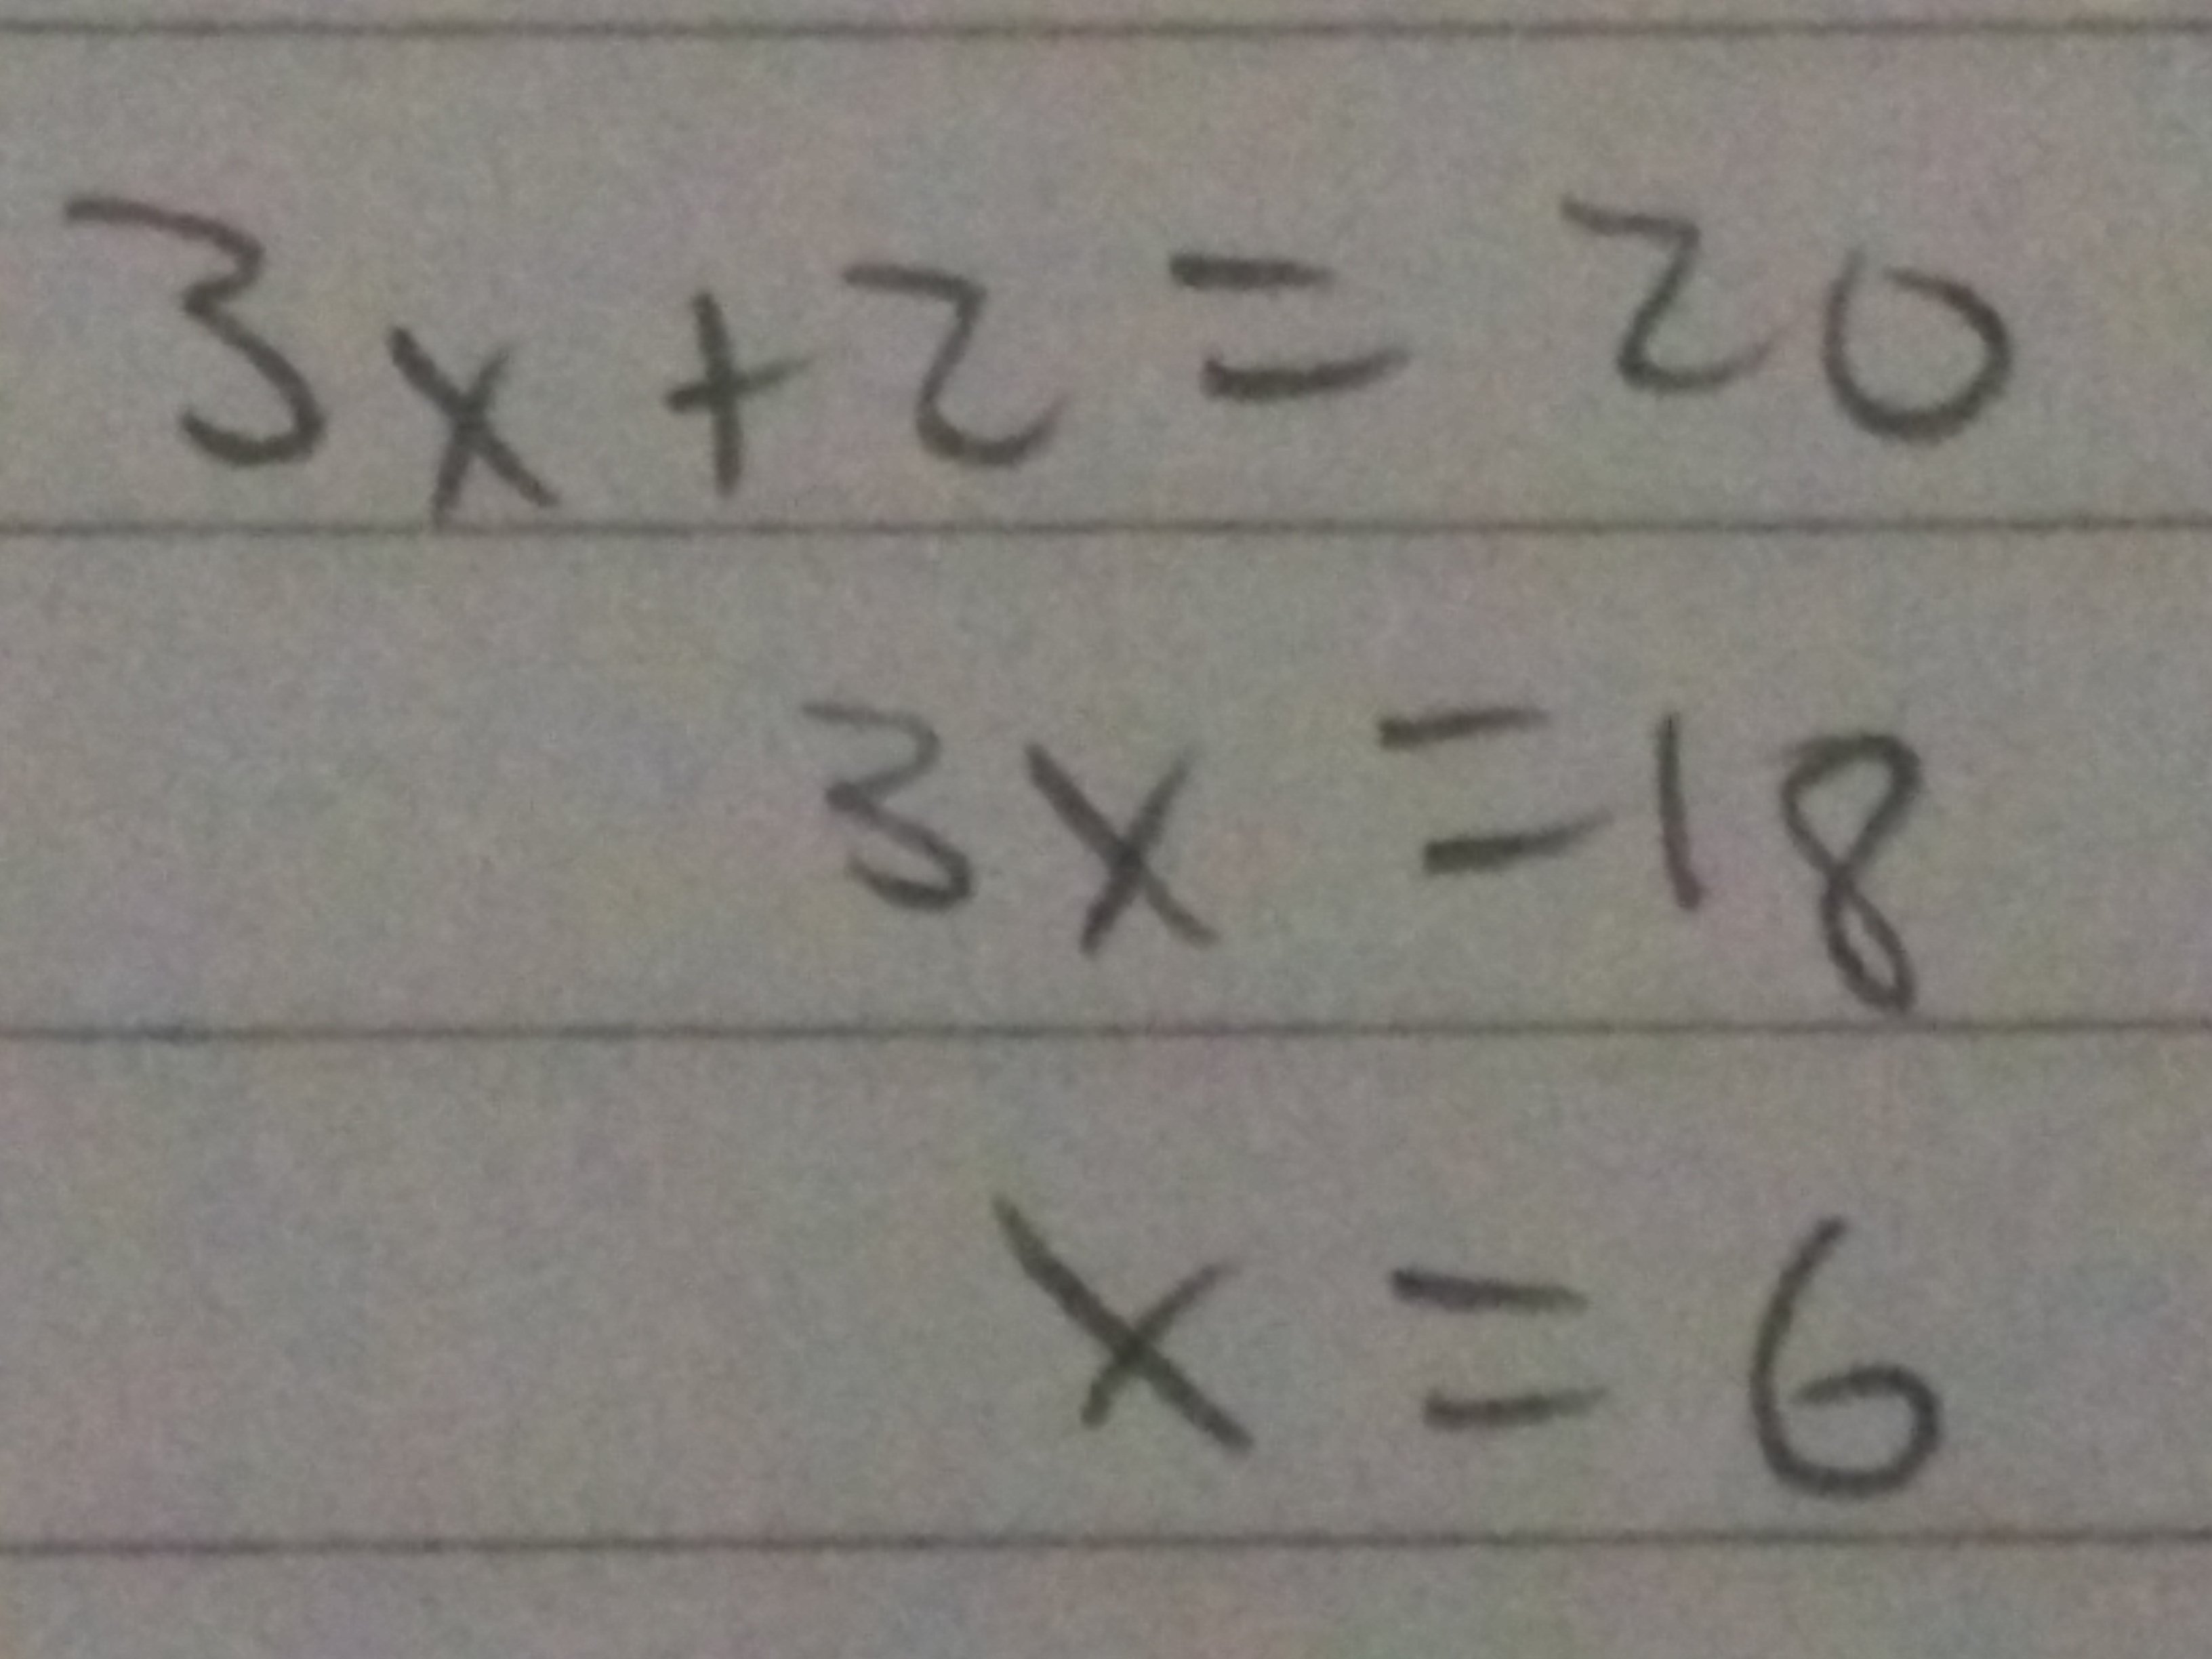 3x+2=20
3x=18
x=6